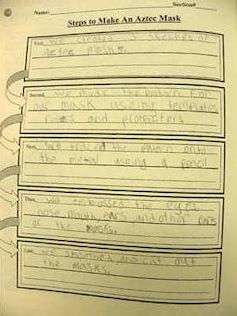 Name: Sec/Grad#
Steps to Make An Aztec Mask
First, we created 3 sketches of
aztec masks.
Second, we made the pattern for
our mask useing templates
rules and protracters
Next, we traced the patern onto
the metal useing a pencil
Then, we embossed the eyes
nose mouth, ears and other
of the masks.
Last, we smoothed and cut out
the masks.